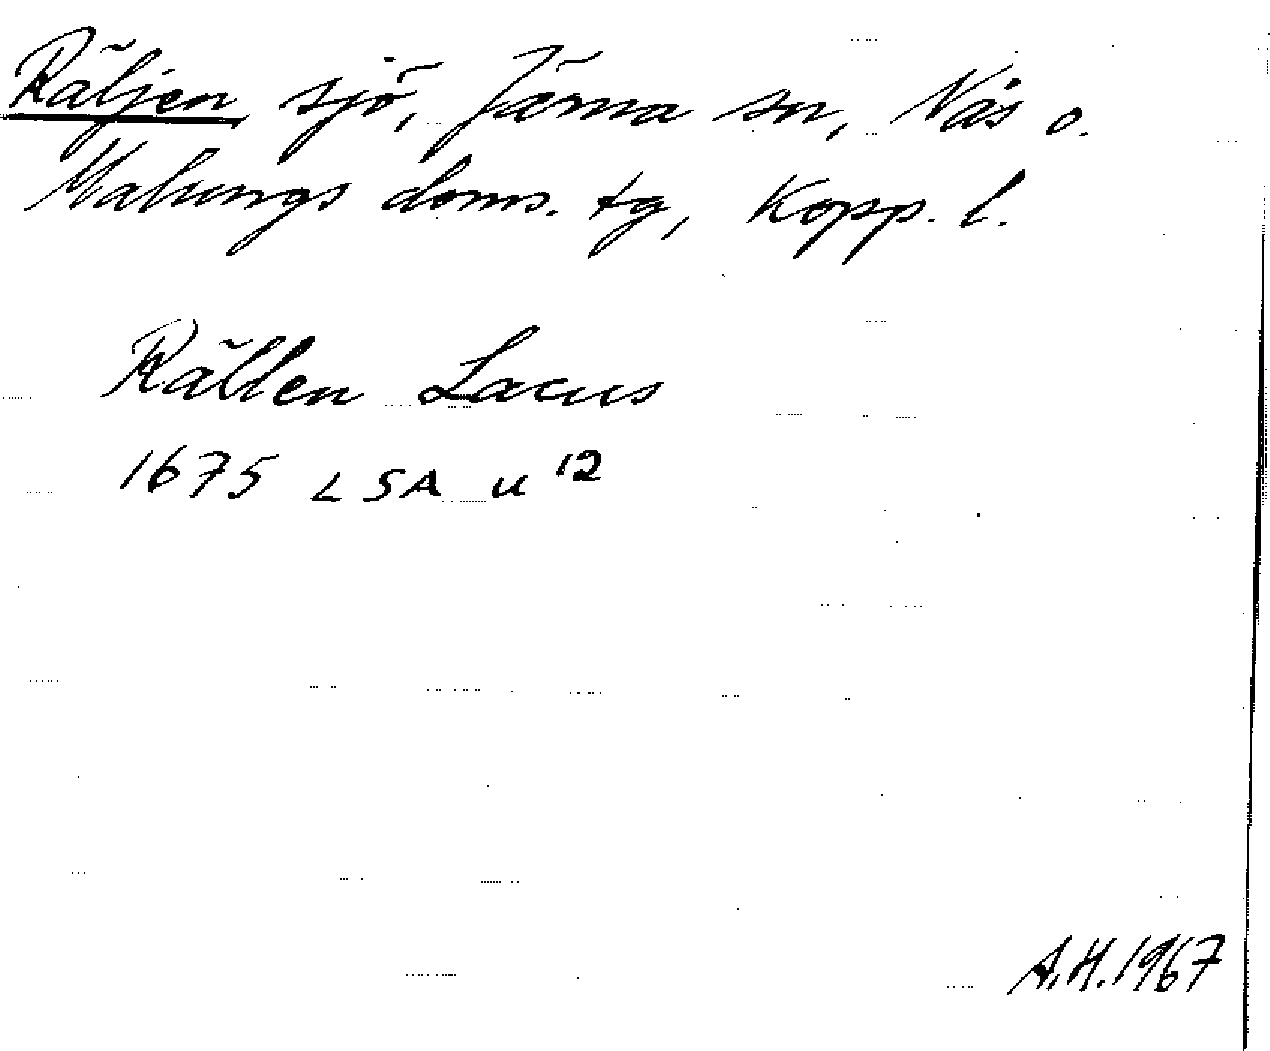 Räljen sjö, Järna sn, Nås o.
Malungs doms. tg, Kopp. l.
Rällen Lacus
1675 LSA U 12
A.H. 1967